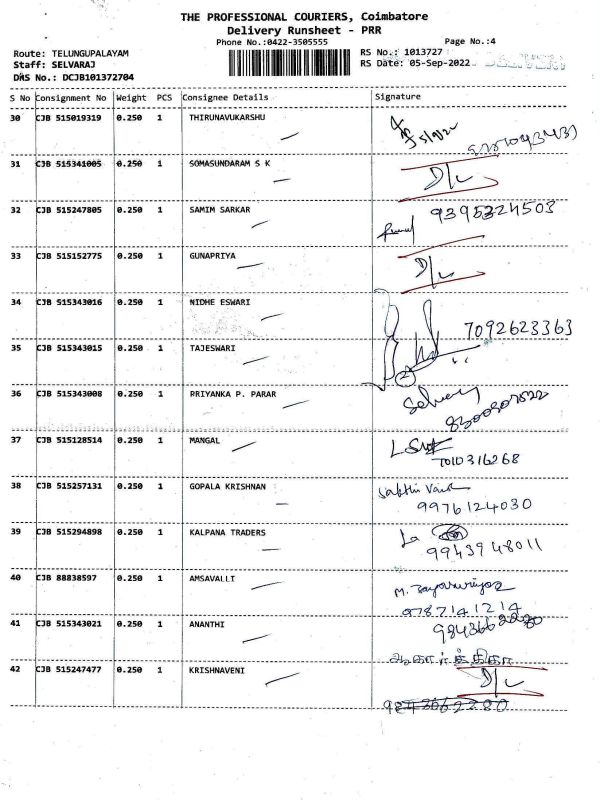 THE PROFESSIONAL COURIERS, Coimbatore
Delivery Runsheet - PRR
Phone No.:0422-3505555 Page No.:4
Route: TELUNGUPALAYAM RS No.: 1013727
Staff: SELVARAJ RS Date: 05-Sep-2022 DELIVERY
DRS No.: DCJB101372704
S No Consignment No Weight PCS Consignee Details Signature
30 CJB 515019319 0.250 1 THIRUNAVUKARSHU
5/9/22
31 CJB 515341005 0.250 1 SOMASUNDARAM S K D/L
32 CJB 515247805 0.250 1 SAMIM SARKAR 9395324503
33 CJB 515152775 0.250 1 GUNAPRIYA D/L
34 CJB 515343016 0.250 1 NIDHE ESWARI 7092623363
35 CJB 515343015 0.250 1 TAJESWARI
2
36 CJB 515343008 0.250 1 PRIYANKA P. PARAR Selvaraj
37 CJB 515128514 0.250 1 MANGAL
38 CJB 515257131 0.250 1 GOPALA KRISHNAN
9976124030
39 CJB 515294898 0.250 1 KALPANA TRADERS
9943948011
40 CJB 88838597 0.250 1 AMSAVALLI
9787141214
41 CJB 515343021 0.250 1 ANANTHI
42 CJB 515247477 0.250 1 KRISHNAVENI D/L